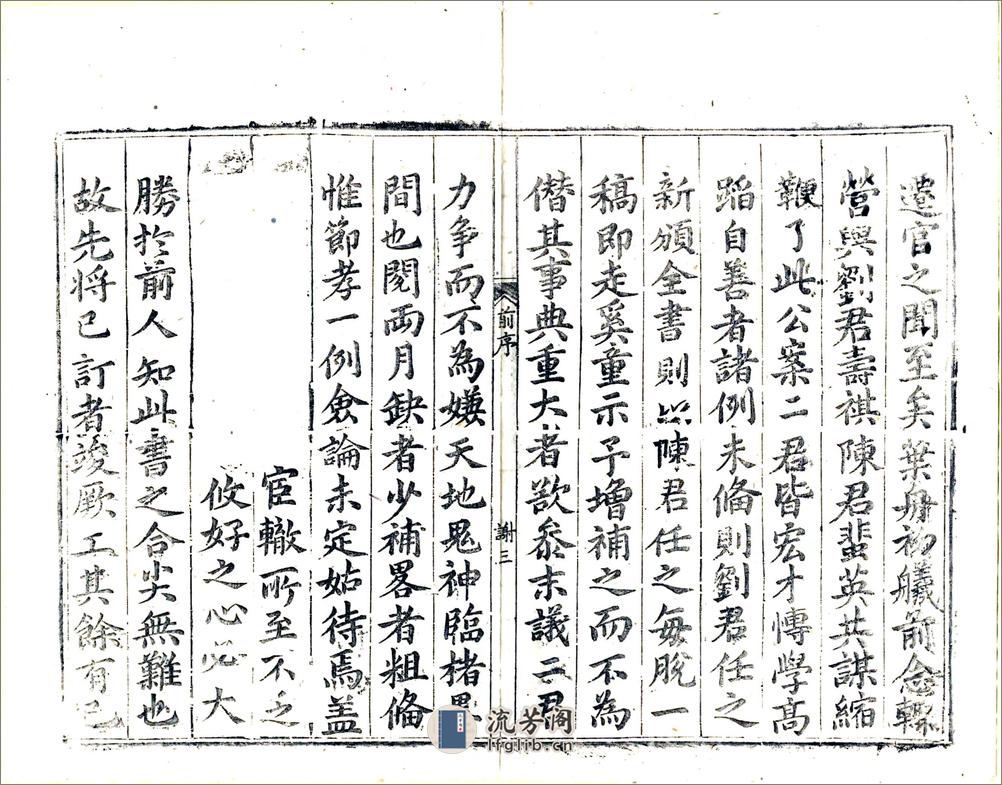 遷官之聞至矣葉舟初艤前念輒
營與劉君壽祺陳君蜚英共謀縮
鞭了此公案二君皆宏才博學高
蹈自善者諸例未俻則劉君任之
新頒全書則 陳君任之每脫一
稿即走奚童示予增補之而不為
僭其事典重大者欲叅末議二君
前序
謝三
力爭而不為嫌天地鬼神臨楮
間也閱兩月缺者少補畧者粗俻
惟節孝一例僉論未定姑待焉盖
宦轍所至不乏
攸好之心必大
勝於前人知此書之合尖無難也
故先將已訂者竣厥工其餘有已
流芳阁
lfglib.cn